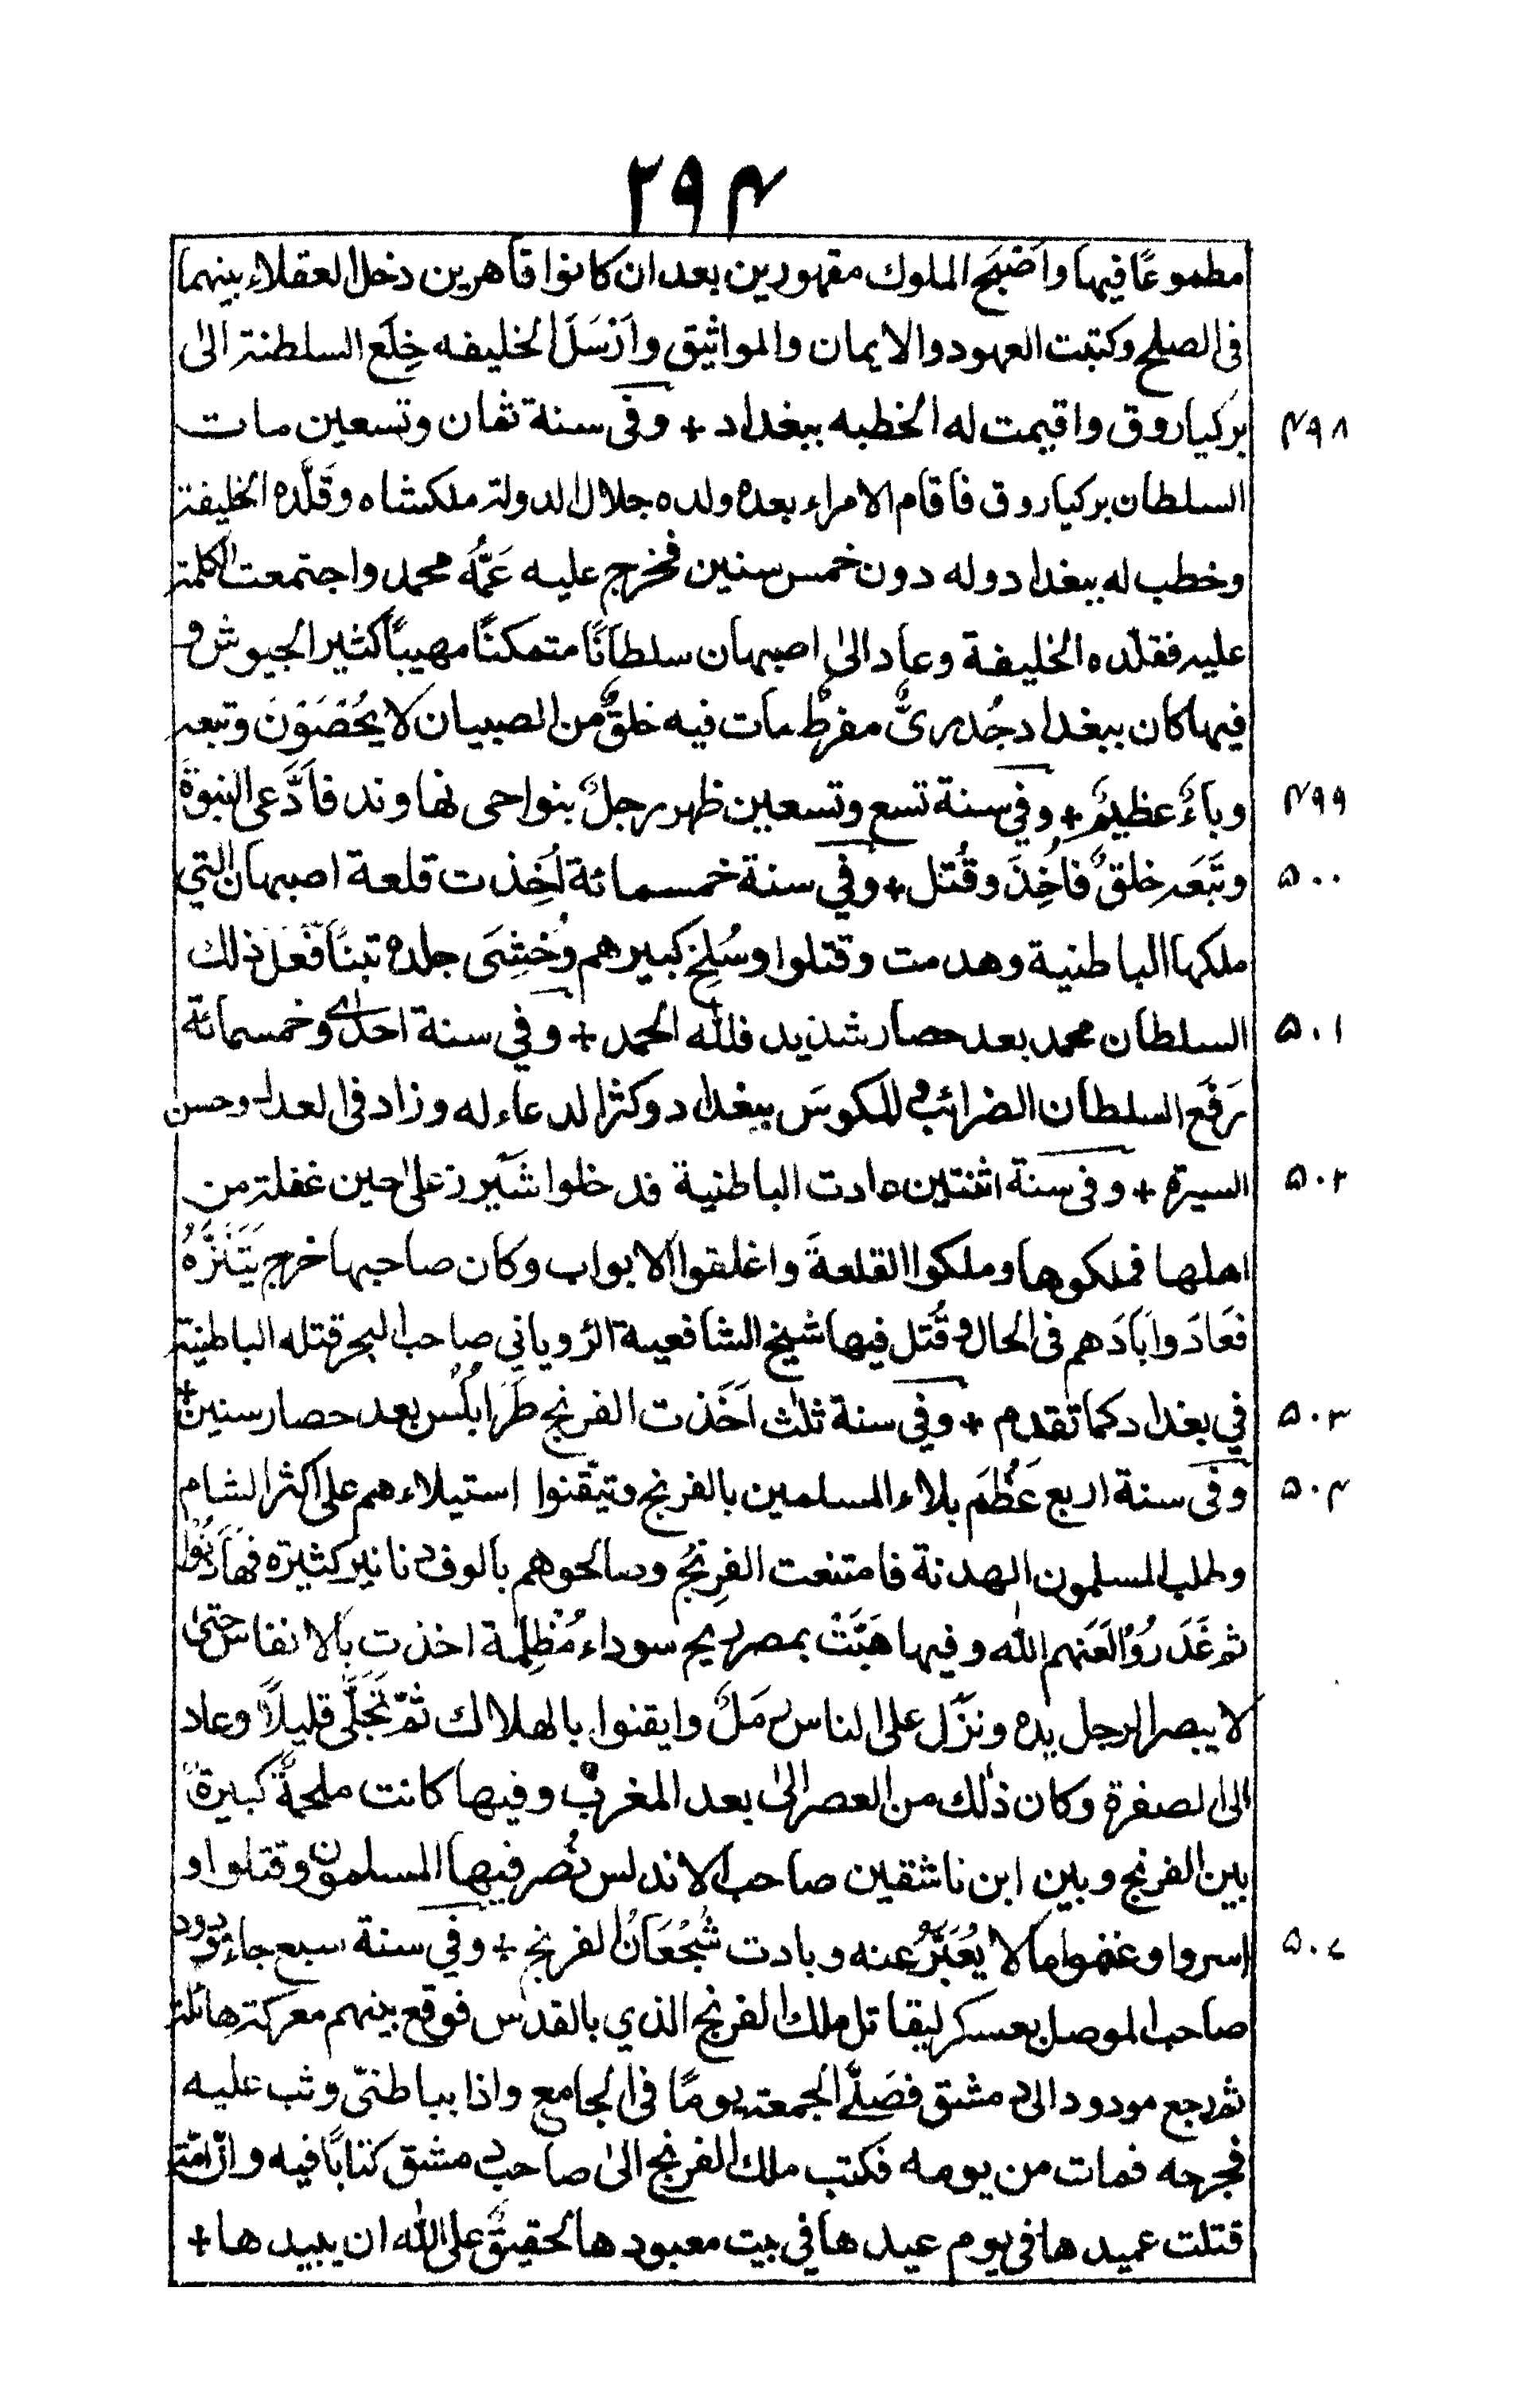 ۲۹۴
مطموعًا فيها واَصْبَحَ الملوك مقهورين بعد ان كانوا قاهرين دخل العقلاء بينهما
فى الصلح وكتبت العهود والايمان والمواثيق واَرْسَلَ الخليفه خِلَع السلطنة الىٰ
بركياروق واقيمت له الخطبه ببغداد + وفى سنة ثمان وتسعين مات
۴۹۸
السلطان بركياروق فاقام الامراء بعده ولده جلال الدولة ملكشاه وقَلَّده الخليفة
وخطب له ببغدا دوله دون خمس سنين فخرج عليه عَمُّه محمد واجتمعت الكلمة
عليه فقلّده الخليفة وعاد الىٰ اصبهان سلطانًا متمكنًا مهيبًا كثير الجيوش و
فيها كان ببغداد جُدرىٌّ مفرطٌ مات فيه خلقٌ من الصبيان لا يُحْصَوْنَ وتبعه
وباءٌ عظيمٌ + وفي سنة تسع وتسعين ظهر رجلٌ بنواحى نهاوند فادَّعى النبوة
۴۹۹
وتَبَعَه خلقٌ فاُخِذَ وقُتل + وفي سنة خمسمائة اُخِذت قلعة اصبهان التي
۵۰۰
ملكها الباطنية وهدمت وقتلوا وسُلِخ كبيرهم وحُشِىَ جلده تبنًا فَعَل ذلك
السلطان محمد بعد حصار شديد فلله الحمد + وفي سنة احدٰى وخمسمائة
۵۰۱
رَفَع السلطان الضرائب و المكوسَ ببغداد وكثر الدعاء له وزاد فى العدل وحسن
السيرة + وفى سنة اثنتين عادت الباطنية فدخلوا شَيْرز علىٰ حين غفلة من
۵۰۲
اهلها فملكوها وملكوا القلعةَ واغلقوا الابواب وكان صاحبها خرج يَتَنَزَّهُ
فعَادَ واَبادَهم فى الحال وقُتل فيها شيخ الشافعية الرُّوياني صاحب البحر قتله الباطنية
في بغداد كما تقدم + وفي سنة ثلث اَخَذت الفرنج طَرَابُلُس بعد حصار سنين +
۵۰۳
وفى سنة اربع عَظُمَ بلاء المسلمين بالفرنج وتيقّنوا استيلاءهم على اكثر الشام
۵۰۴
وطلب المسلمون الهدنة فامتنعت الفرنجُ وصالحوهم بالوف دنانير كثيرة فهَادَنُوا
ثم غَدَرُوْا لَعَنهم الله وفيها هَبَّتْ بمصر ريح سوداء مُظْلِمة اخذت بالانفاس حتىٰ
لا يبصر الرجل يده ونَزَل على الناس رَملٌ وايقنوا بالهلاك ثمّ تَجَلَّى قليلًا وعاد
الى الصفرة وكان ذٰلك من العصر الىٰ بعد المغرب وفيها كانت ملحمةٌ كبيرةٌ
بين الفرنج وبين ابن تاشقين صاحب الاندلس نُصر فيها المسلمون وقتلوا و
اسروا وغنموا ما لا يُعَبَّرُ عنه وبادت شُجْعَانُ الفرنج + وفي سنة سبع جاء مودود
۵۰۷
صاحب الموصل بعسكر ليقاتل ملك الفرنج الذي بالقدس فوقع بينهم معركة هائلة
ثم رجع مودود الى دمشق فصَلّٰى الجمعة يومًا فى الجامع واذا بباطنىّ وثب عليه
فجرحه فمات من يومه فكتب ملك الفرنج الىٰ صاحب دمشق كتابًا فيه وانّ امّة
قتلت عميدها فى يوم عيدها في بيت معبودها لحقيقٌ على الله ان يبيدها +